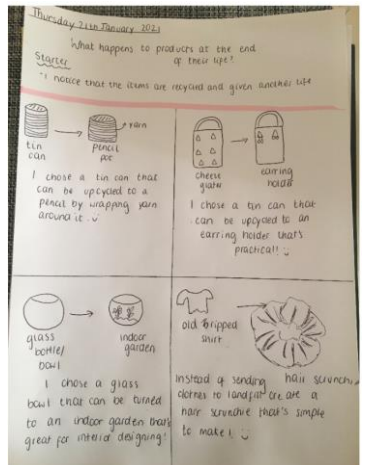 Thursday 21th January 2021
What happens to products at the end
of their life?
Starter
I notice that the items are recycled and given another life
tin
can
yarn
pencil
pot
I chose a tin can that
can be upcycled to a
pencil by wrapping yarn
around it.
cheese
grater
earring
holder
I chose a tin can that
can be upcycled to an
earring holder that's
practical!
glass
bottle/
bowl
indoor
garden
I chose a glass
bowl that can be turned
to an indoor garden that's
great for interior designing!
old ripped
shirt
hair scrunchie
Instead of sending
clothes to landfill create a
hair scrunchie that's simple
to make!